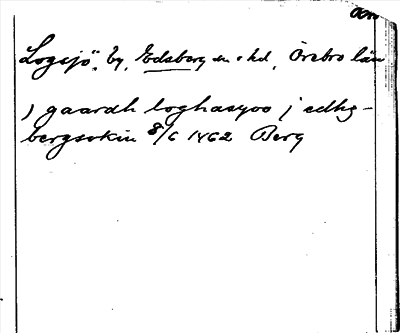 Logsjö, by, Edsberg sn o hd, Örebro län
) gaardh loghasyoo j edhg-
bergsokin 8/6 1462 Berg